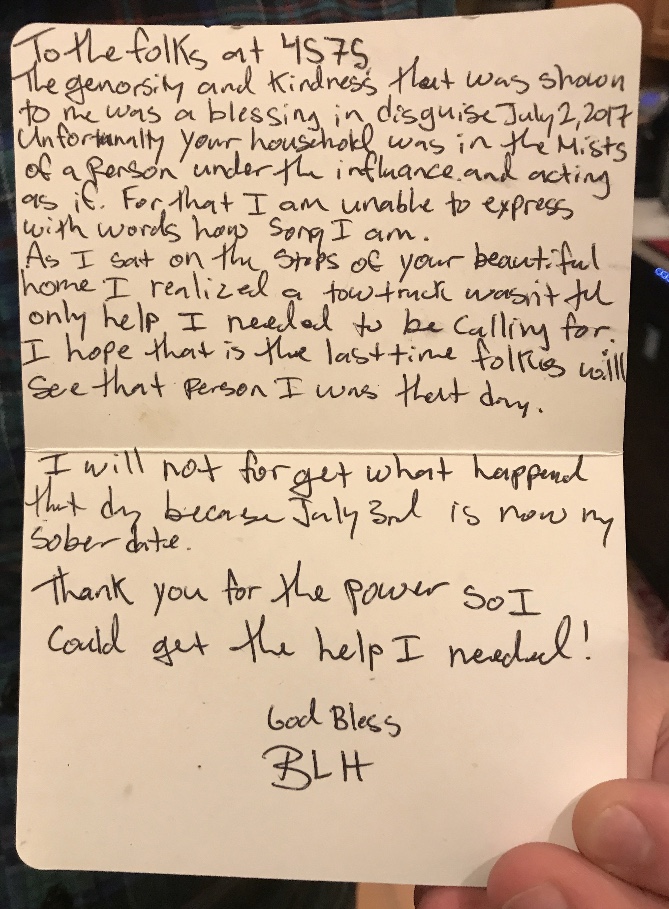 To the folks at 4575
The genorsity and kindness that was shown
to me was a blessing in disguise July 2, 2017
Unfortunatly your household was in the Mists
of a person under the influence and acting
as if. For that I am unable to express
with words how Sorry I am.
As I sat on the steps of your beautiful
home I realized a tow truck wasn't the
only help I needed to be calling for.
I hope that is the last time folkes will
see that person I was that day.
I will not forget what happend
that day because July 3rd is now my
Sober date.
Thank you for the power so I
Could get the help I needed!
God Bless
BLH